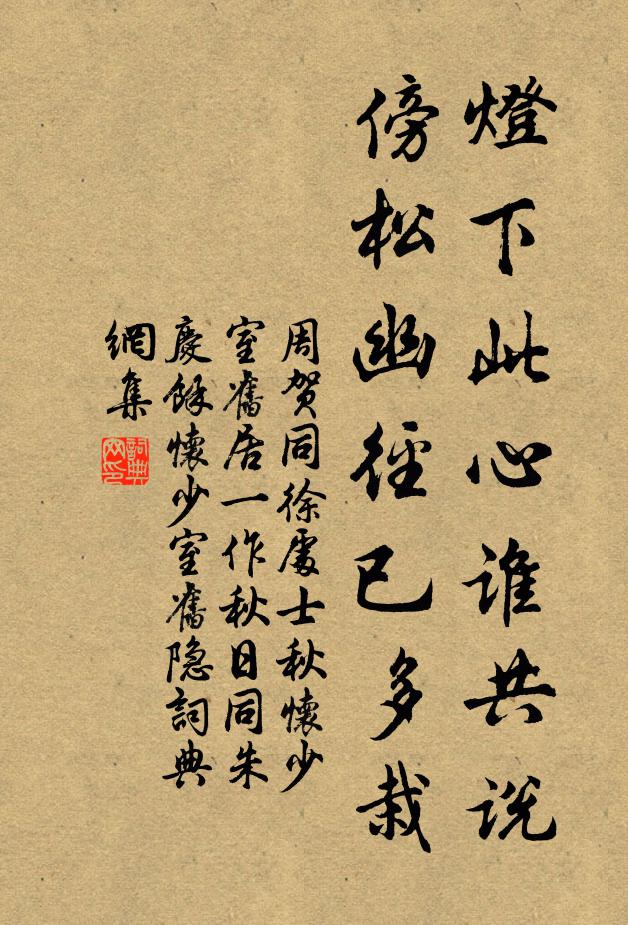 燈下此心誰共説
傍松幽徑已多栽
周賀同徐處士秋懷少
室舊居一作秋日同朱
慶餘懷少室舊隱詞典
網集
詞典
网印